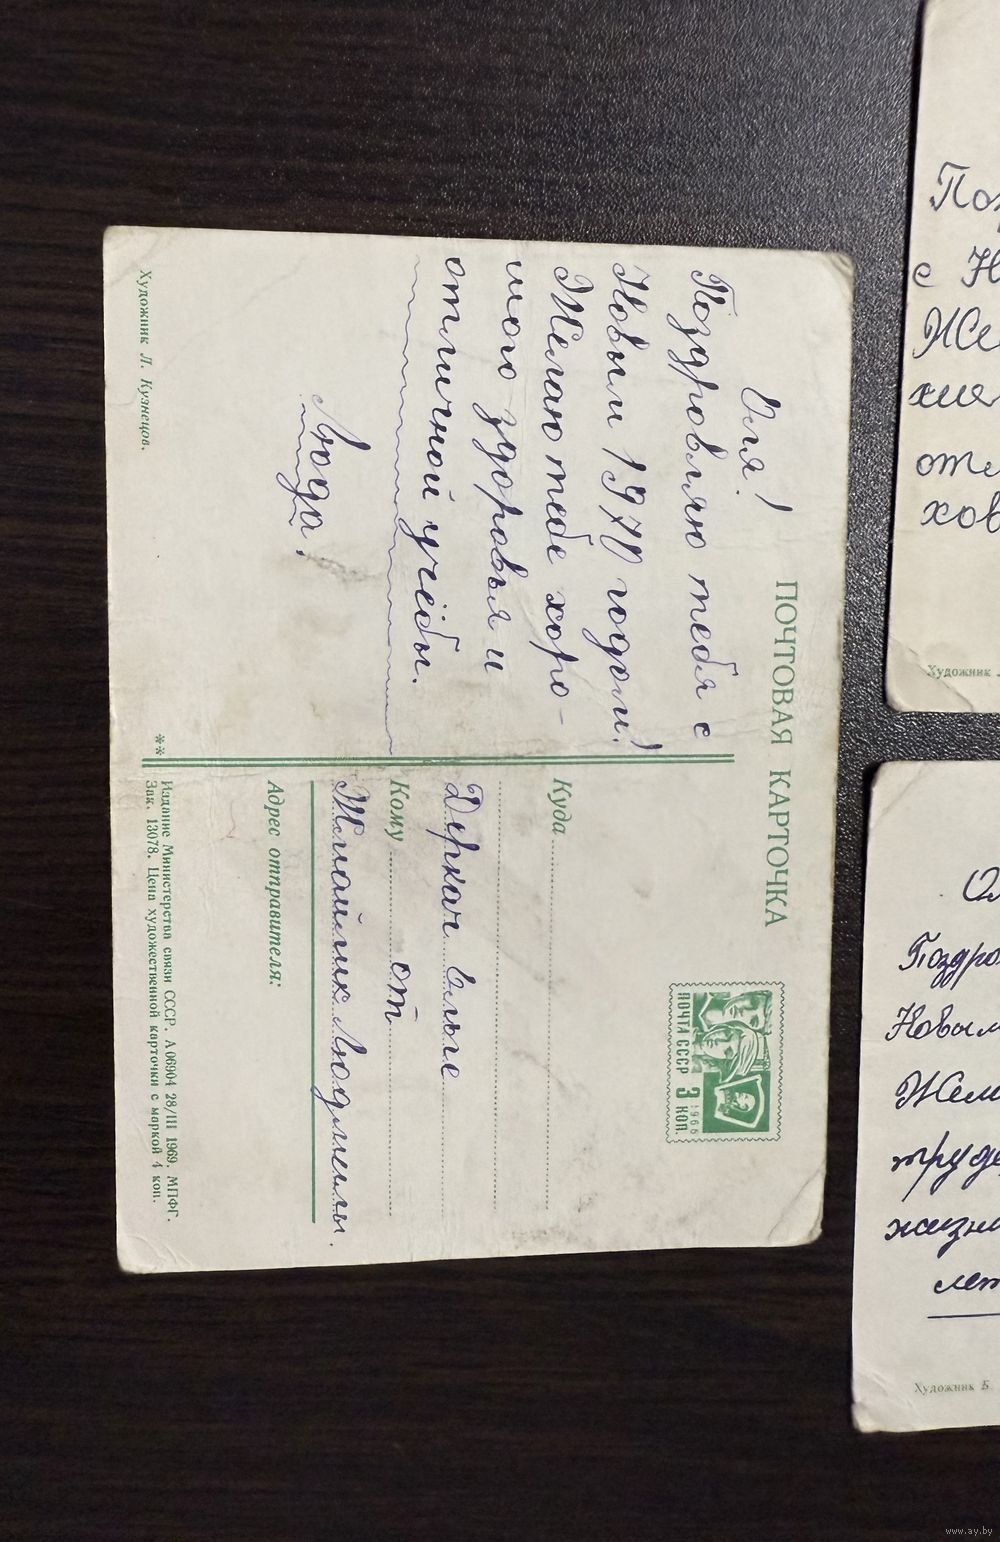 ПОЧТОВАЯ КАРТОЧКА
Оля!
Поздровляю тебя с
Новым 1970 годом!
Желаю тебе хоро-
шого здоровья и
отличной учёбы.
Люда!
Художник Л. Кузнецов.
ПОЧТА СССР 3 КОП.
1966
Куда
Деркач Ольге
Кому от
Людмилы.
Адрес отправителя:
** Издание Министерства связи СССР. А 06904 28/III 1969. МПФГ.
Зак. 13078. Цена художественной карточки с маркой 4 коп.
с Н
Же
отл
хов
Художник
Ол
Поздро
Новым
Жел
труде
жизн
лет
Художник Б
www.ay.by